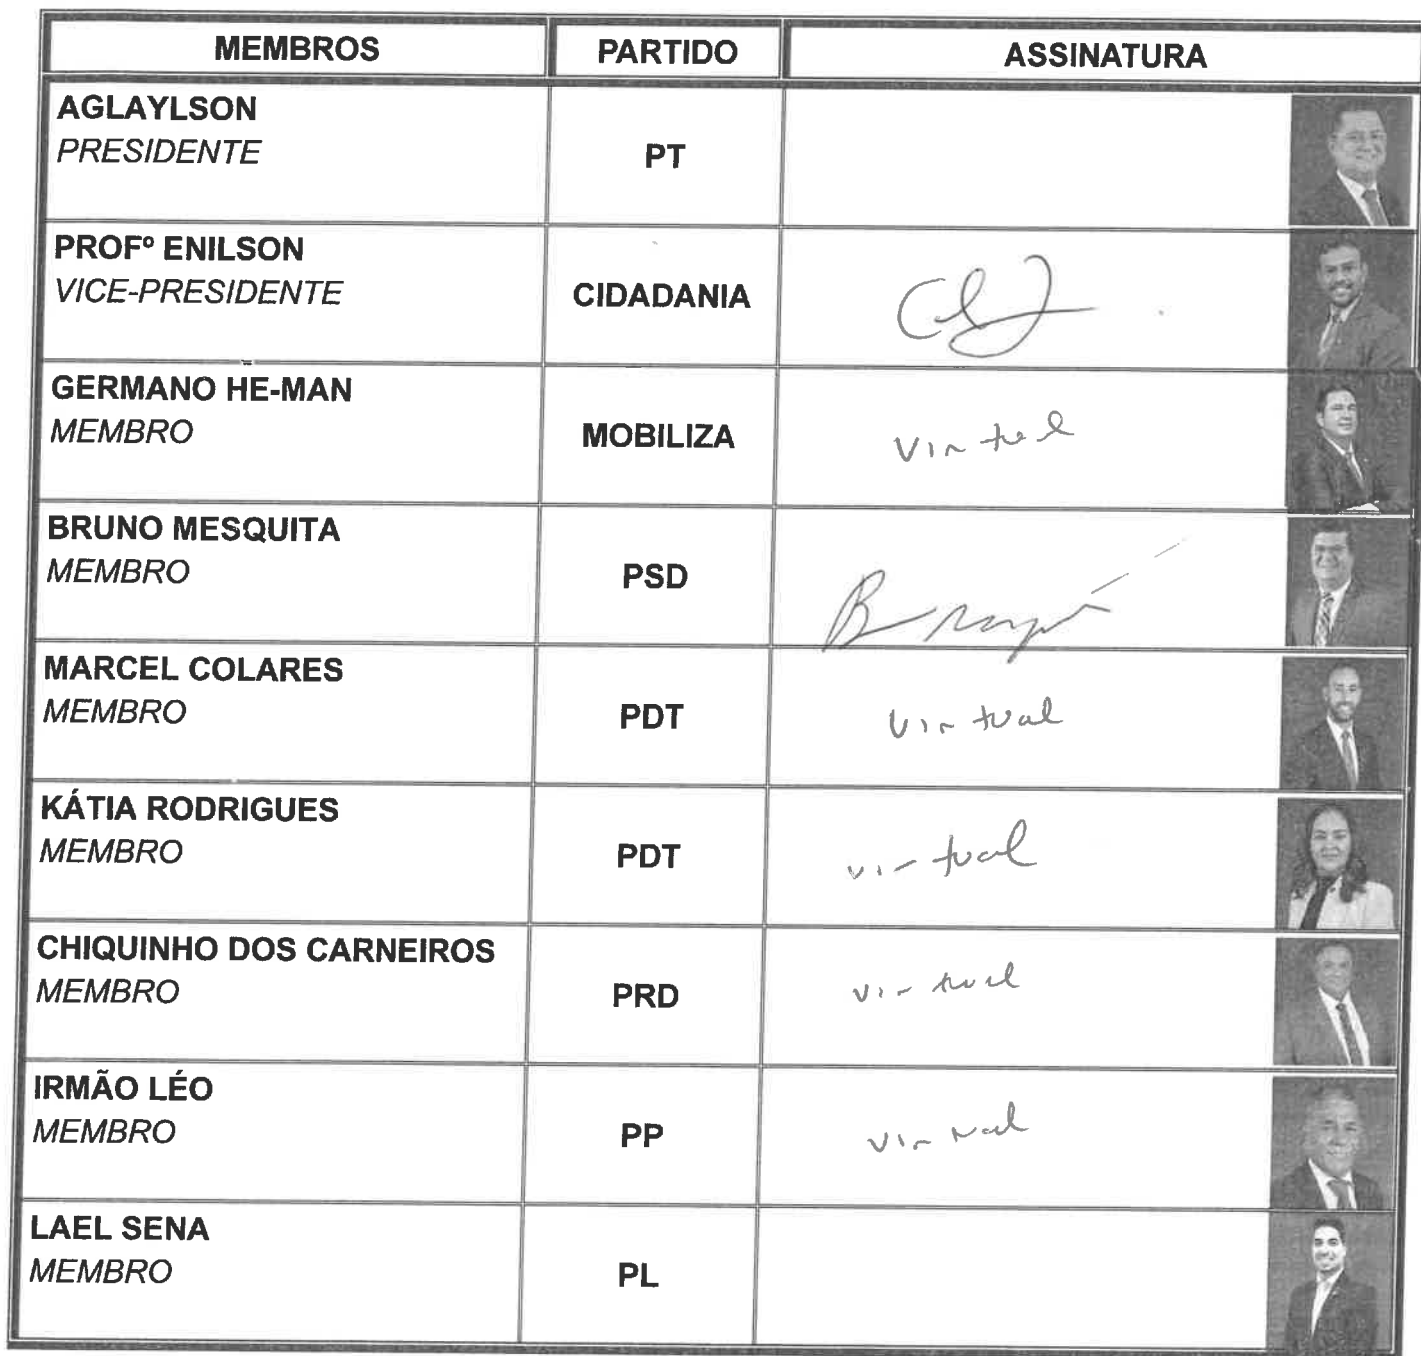 MEMBROS PARTIDO ASSINATURA
AGLAYLSON
PRESIDENTE
PT
PROFº ENILSON
VICE-PRESIDENTE
CIDADANIA
GERMANO HE-MAN
MEMBRO
MOBILIZA
Virtual
BRUNO MESQUITA
MEMBRO
PSD
MARCEL COLARES
MEMBRO
PDT
Virtual
KÁTIA RODRIGUES
MEMBRO
PDT
virtual
CHIQUINHO DOS CARNEIROS
MEMBRO
PRD
virtual
IRMÃO LÉO
MEMBRO
PP
virtual
LAEL SENA
MEMBRO
PL